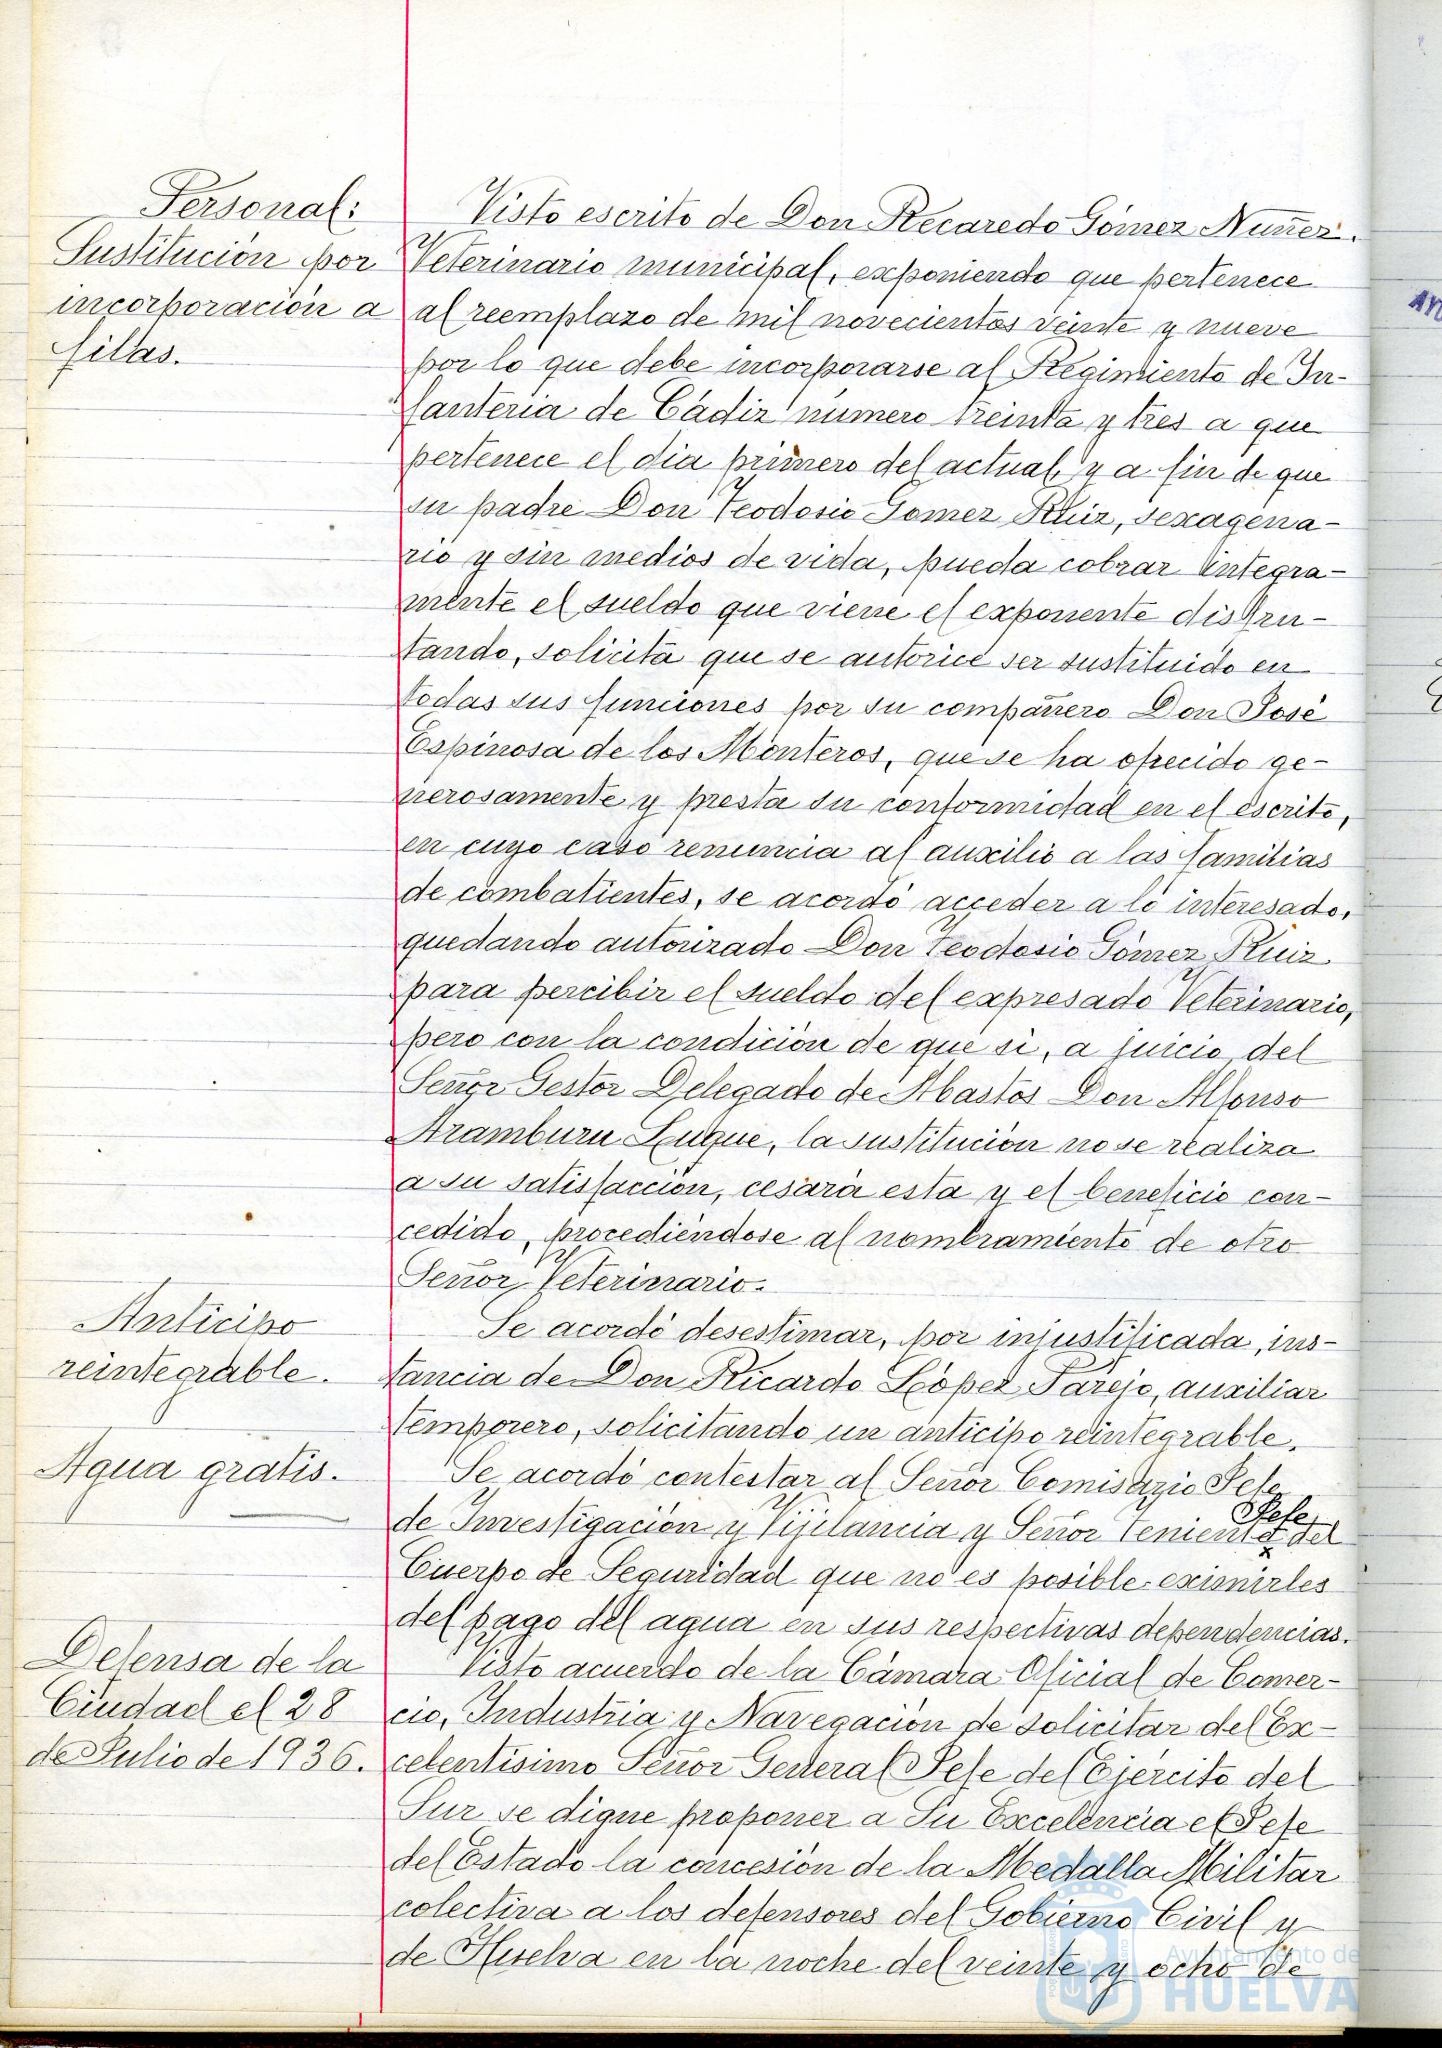 Personal:
Sustitución por
incorporación a
filas.
Visto escrito de Don Recaredo Gómez Nuñez.
Veterinario municipal, exponiendo que pertenece
al reemplazo de mil novecientos veinte y nueve
por lo que debe incorporarse al Regimiento de In-
fantería de Cádiz número treinta y tres a que
pertenece el dia primero del actual, y a fin de que
su padre Don Teodosio Gomez Ruiz, sexagena-
rio y sin medios de vida, pueda cobrar integra-
mente el sueldo que viene el exponente disfru-
tando, solicita que se autorice ser sustituido en
todas sus funciones por su compañero Don José
Espinosa de los Monteros, que se ha ofrecido ge-
nerosamente y presta su conformidad en el escrito,
en cuyo caso renuncia al auxilio a las familias
de combatientes, se acordó acceder a lo interesado,
quedando autorizado Don Teodosio Gómez Ruiz
para percibir el sueldo del expresado Veterinario,
pero con la condición de que si, a juicio del
Señor Gestor Delegado de Abastos Don Alfonso
Aramburu Luque, la sustitución no se realiza
a su satisfacción, cesará esta y el beneficio con-
cedido, procediéndose al nombramiento de otro
Señor Veterinario.
Anticipo
reintegrable.
Se acordó desestimar, por injustificada, ins-
tancia de Don Ricardo López Parejo, auxiliar
temporero, solicitando un anticipo reintegrable.
Agua gratis.
Se acordó contestar al Señor Comisario Jefe
de Investigación y Vijilancia y Señor Teniente Jefe del
Cuerpo de Seguridad que no es posible eximirles
del pago del agua en sus respectivas dependencias.
Defensa de la
Ciudad el 28
de Julio de 1936.
Visto acuerdo de la Cámara Oficial de Comer-
cio, Industria y Navegación de solicitar del Ex-
celentísimo Señor General Jefe del Ejército del
Sur se digne proponer a Su Excelencia el Jefe
del Estado la concesión de la Medalla Militar
colectiva a los defensores del Gobierno Civil y
de Huelva en la noche del veinte y ocho de
Ayuntamiento de
HUELVA